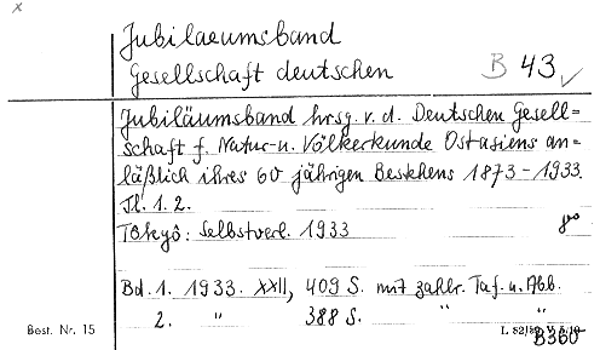 x
Jubilaeumsband
Gesellschaft deutschen B 43 ✓
Jubiläumsband hrsg. v. d. Deutschen Gesell=
schaft f. Natur- u. Völkerkunde Ostasiens an=
läßlich ihres 60 jährigen Bestehens 1873-1933.
Tl. 1. 2.
Tokyô: Selbstverl. 1933 8°
Bd. 1. 1933. XXII, 409 S. mit zahlr. Taf. u. Abb.
2. " 388 S. " "
Best. Nr. 15 L 82/89
B360